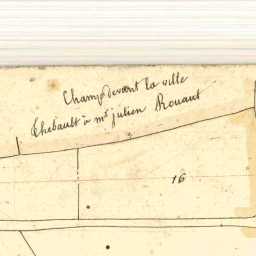 Champ devant la ville
Thebault à mr julien Rouaut
16